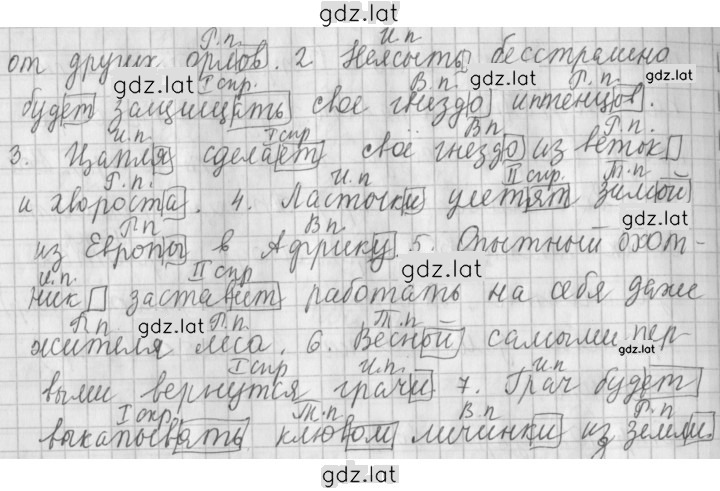 gdz.lat
Р.п. И.п.
от других орлов. 2 Неясыть бесстрашно
gdz.lat I спр. В.п Р.п. gdz.lat
будет защищать свое гнездо и птенцов.
И.п I спр В п Р.п.
3. Цапля сделает своё гнездо из веток
Р.п. И.п II спр. Т.п
и хвороста. 4. Ласточки улетят зимой
Р.п В п. gdz.lat
из Европы в Африку. 5. Опытный охот-
И.п. II спр gdz.lat
ник заставит работать на себя даже
Р.п gdz.lat Р.п. Т.п
жителя леса. 6. Весной самыми пер-
I спр И.п. И.п gdz.lat
выми вернутся грачи 7. Грач будет
I спр. Т.п В.п Р.п
выкапывать клювом личинки из земли.
gdz.lat